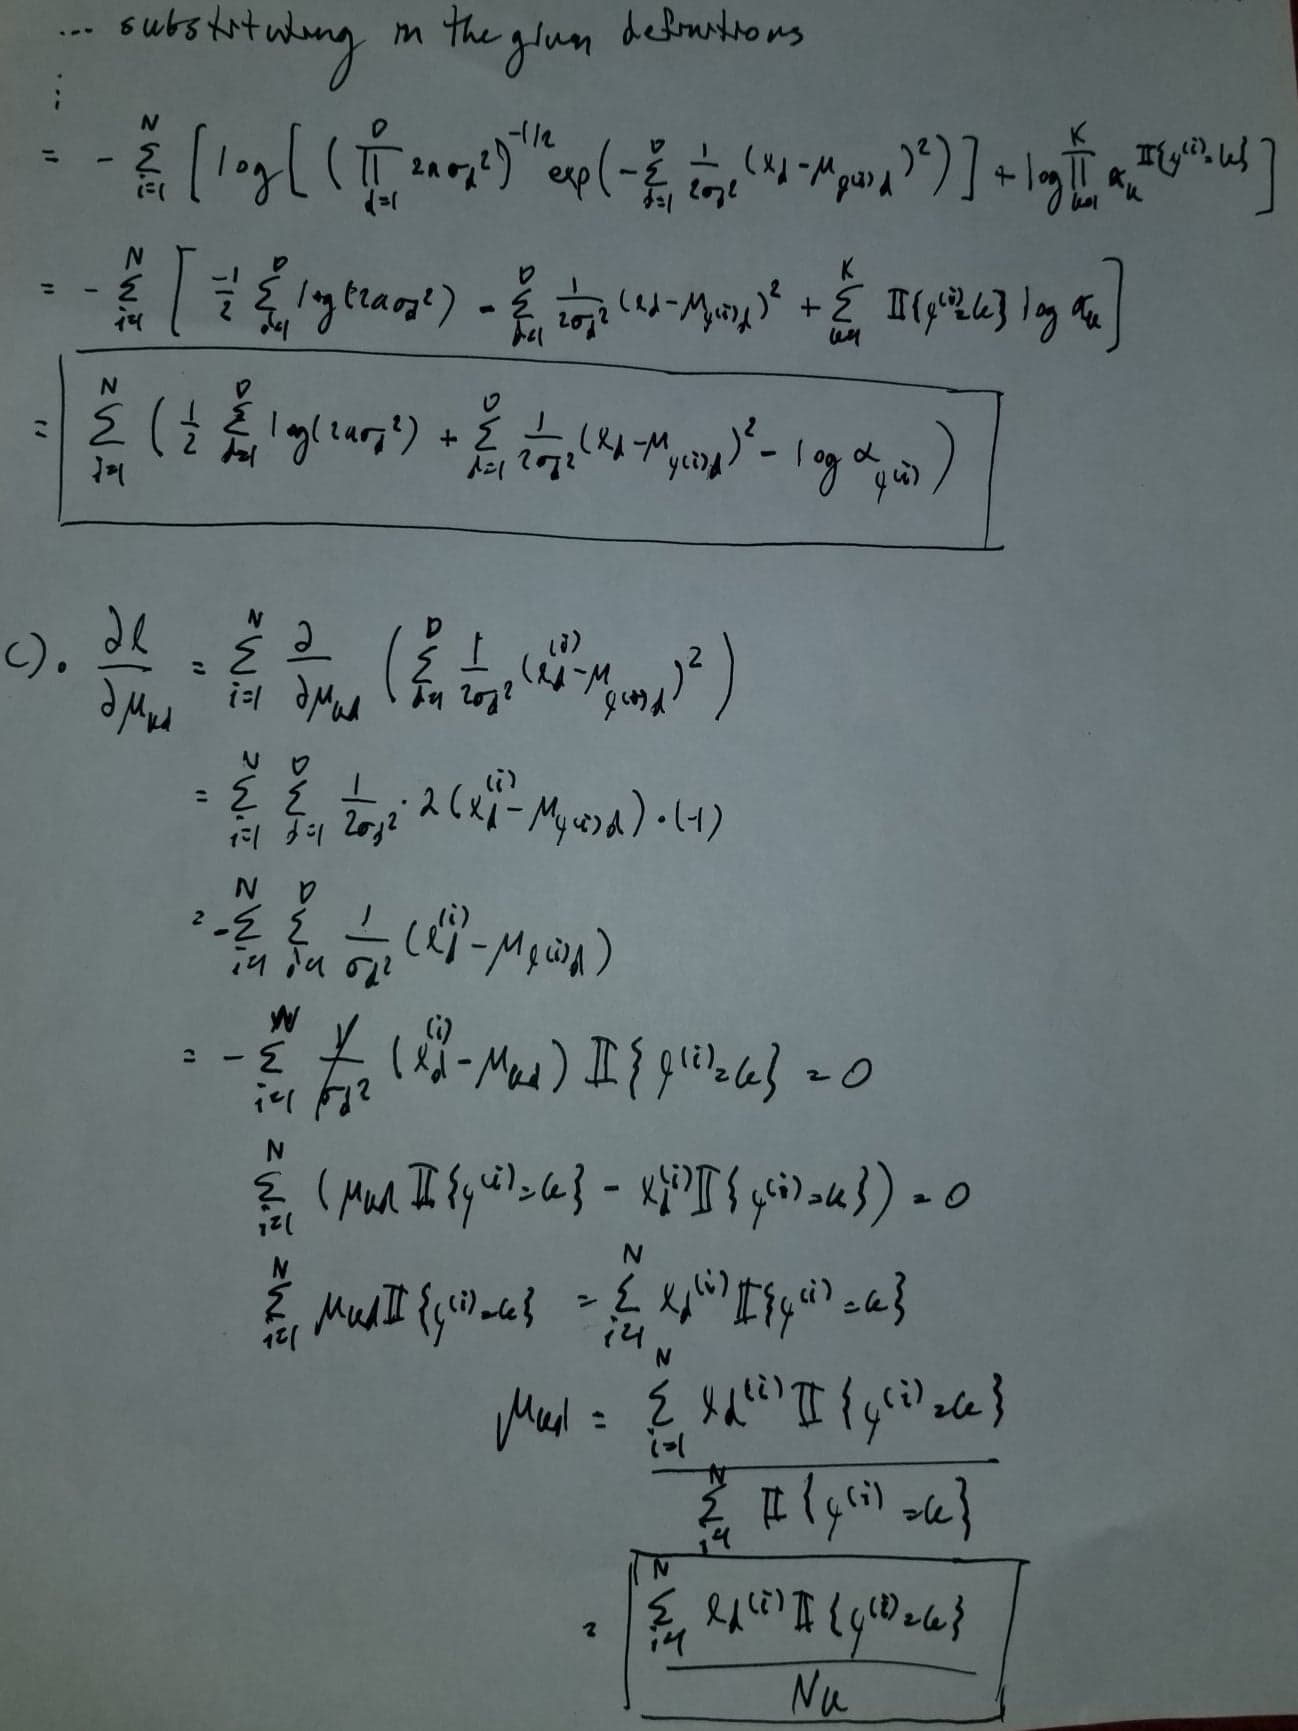 ... substituting in the given definitions
:
= - Σ_{i=1}^{N} [ log [ ( Π_{d=1}^{D} 2πσ_d² )^{-1/2} exp( - Σ_{d=1}^{D} 1/(2σ_d²) (x_d - μ_{y^{(i)}d})² ) ] + log Π_{k=1}^{K} α_k^{𝕀{y^{(i)}=k}} ]
= - Σ_{i=1}^{N} [ -1/2 Σ_{d=1}^{D} log(2πσ_d²) - Σ_{d=1}^{D} 1/(2σ_d²) (x_d - μ_{y^{(i)}d})² + Σ_{k=1}^{K} 𝕀{y^{(i)}=k} log α_k ]
= Σ_{i=1}^{N} ( 1/2 Σ_{d=1}^{D} log(2πσ_d²) + Σ_{d=1}^{D} 1/(2σ_d²) (x_d - μ_{y^{(i)}d})² - log α_{y^{(i)}} )
c). ∂ℓ/∂μ_{kd} = Σ_{i=1}^{N} ∂/∂μ_{kd} ( Σ_{d=1}^{D} 1/(2σ_d²) (x_d^{(i)} - μ_{y^{(i)}d})² )
= Σ_{i=1}^{N} Σ_{d=1}^{D} 1/(2σ_d²) · 2 (x_d^{(i)} - μ_{y^{(i)}d}) · (-1)
= - Σ_{i=1}^{N} Σ_{d=1}^{D} 1/σ_d² (x_d^{(i)} - μ_{y^{(i)}d})
= - Σ_{i=1}^{N} 1/σ_d² (x_d^{(i)} - μ_{kd}) 𝕀{y^{(i)}=k} = 0
Σ_{i=1}^{N} (μ_{kd} 𝕀{y^{(i)}=k} - x_d^{(i)} 𝕀{y^{(i)}=k}) = 0
Σ_{i=1}^{N} μ_{kd} 𝕀{y^{(i)}=k} = Σ_{i=1}^{N} x_d^{(i)} 𝕀{y^{(i)}=k}
μ_{kd} = Σ_{i=1}^{N} x_d^{(i)} 𝕀{y^{(i)}=k} / Σ_{i=1}^{N} 𝕀{y^{(i)}=k}
= Σ_{i=1}^{N} x_d^{(i)} 𝕀{y^{(i)}=k} / N_k